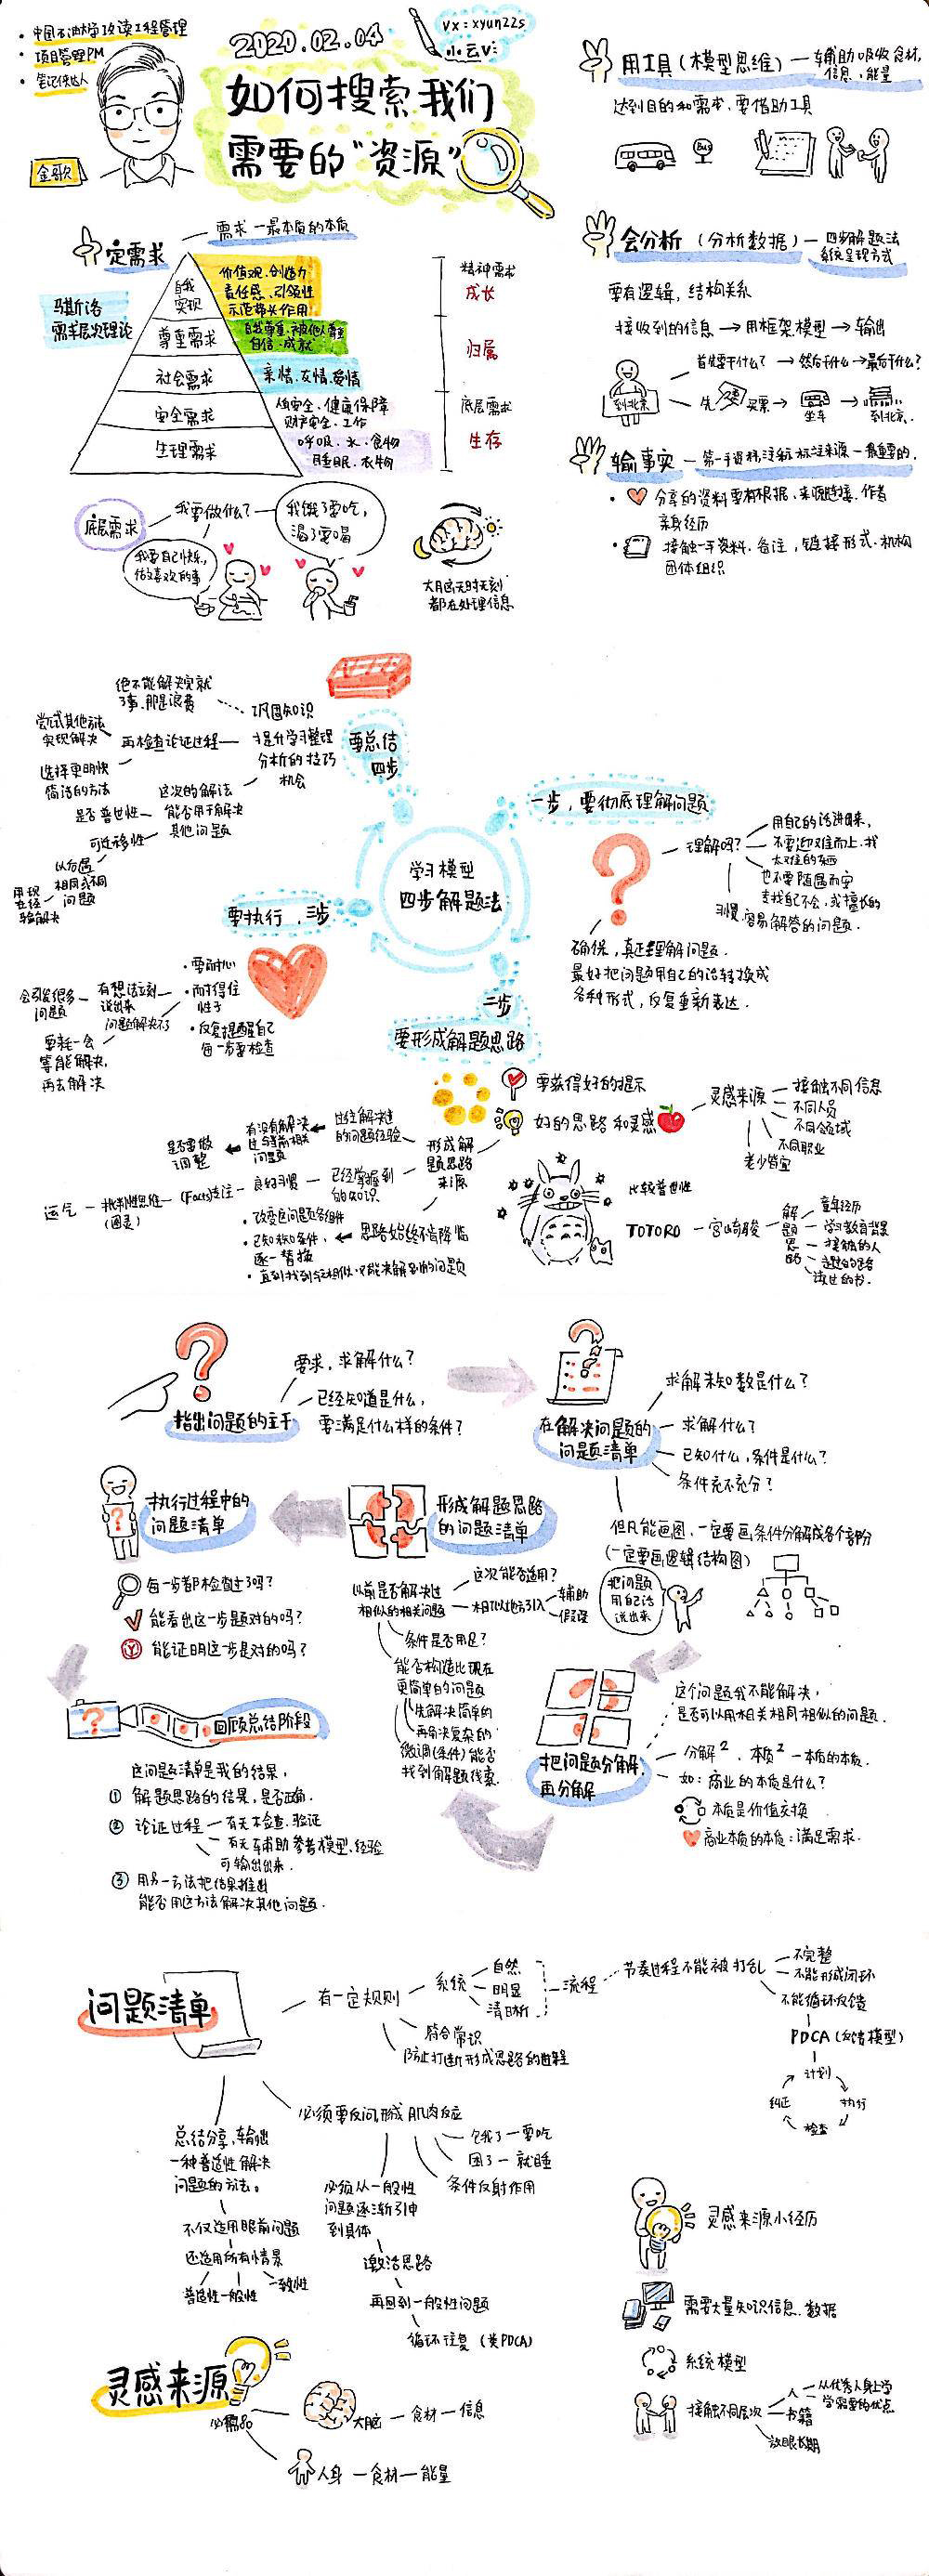 中国石油大学攻读工程管理
项目管理PM
笔记侠达人
金歌
2020.02.04
vx:xyun22s
小云v:
如何搜索我们
需要的“资源”
定需求
需求一最本质的本质
马斯洛
需求层次理论
自我
实现
尊重需求
社会需求
安全需求
生理需求
价值观.创造力
责任感.引领性
示范带头作用
自我尊重.被他人尊重
自信.成就
亲情.友情.爱情
人身安全.健康保障
财产安全.工作
呼吸.水.食物
睡眠.衣物
精神需求
成长
归属
底层需求
生存
底层需求
我要做什么?
我饿了要吃,
渴了要喝
我要自己快乐,
做喜欢的事
大脑无时无刻
都在处理信息
用工具(模型思维)—辅助吸收食材,
信息、能量
达到目的和需求,要借助工具
Bus
会分析(分析数据)—四步解题法
系统呈现方式
要有逻辑,结构关系
接收到的信息→用框架模型→输出
到北京
首先要干什么?→然后干什么→最后干什么?
先买票→坐车→到北京.
输事实—第一手资料,注释,标注来源—最重要的.
分享的资料要有根据、来源链接、作者
亲身经历
接触一手资料.备注,链接形式.机构
团体组织
学习模型
四步解题法
一步,要彻底理解问题
理解吗?
用自己的话讲出来,
不要迎难而上.找
太难的东西
也不要随遇而安
去找自己不会,我擅长的
习惯.容易解答的问题.
确保,真正理解问题.
最好把问题用自己的话转换成
各种形式,反复重新表达.
二步
要形成解题思路
要获得好的提示
好的思路和灵感
灵感来源
接触不同信息
不同人员
不同领域
不同职业
老少皆宜
形成解
题思路
来源
过往解决过
的问题经验
有没有解决
过与当前相关
问题
是否要做
调整
已经掌握到
的知识
良好习惯
(Facts)专注
批判性思维
(图灵)
运气
思路始终不肯降临
改变这问题各组件
已知未知条件,
逐一替换
直到找到较相似可能决解别的问题
比较普世性
TOTORO—宫崎骏
解
题
思
路
童年经历
学习教育背景
接触的人
走过的路
读过的书.
要执行.三步
要耐心
耐得住
性子
反复提醒自己
每一步要检查
有想法立刻
说出来
问题解决不了
会引发很多
问题
要等一会
等能解决,
再去解决
要总结
四步
巩固知识
提升学习整理
分析的技巧
机会
绝不能解决完就
了事.那是浪费
再检查论证过程
尝试其他方法
实现解决
选择更明快
简洁的方法
这次的解法
能否用于解决
其他问题
是否普世性
可迁移性
以后遇
相同或不同
问题
用现
在经
验解决
指出问题的主干
要求,求解什么?
已经知道是什么,
要满足什么样的条件?
在解决问题的
问题清单
求解未知数是什么?
求解什么?
已知什么,条件是什么?
条件充不充分?
但凡能画图,一定要画条件分解成各个部份
(一定要画逻辑结构图)
把问题
用自己话
说出来
把问题分解,
再分解
这个问题我不能解决,
是否可以用相关相同相似的问题.
分解²,本质²—本质的本质.
如:商业的本质是什么?
本质是价值交换
商业本质的本质:满足需求.
形成解题思路
的问题清单
以前是否解决过
相似的相关问题
这次能否适用?
相似地方引入
辅助
假设
条件是否用足?
能否构造比现在
更简单的问题
先解决简单的
再解决复杂的
微调(条件)能否
找到解题线索.
执行过程中的
问题清单
每一步都检查过了吗?
能看出这一步是对的吗?
能证明这一步是对的吗?
回顾总结阶段
这问题清单是我的结果,
①解题思路的结果,是否正确.
②论证过程—有无检查.验证
有无辅助参考模型.经验
可输出出来.
③用另一方法把结果推出
能否用这方法解决其他问题.
问题清单
有一定规则
系统
自然
明显
清晰
流程
节奏过程不能被打乱
不完整
不能形成闭环
不能循环反馈
PDCA(反馈模型)
计划
执行
检查
纠正
符合常识
防止打断形成思路的进程
必须要反问,形成肌肉反应
饿了一要吃
困了一就睡
条件反射作用
必须从一般性
问题逐渐引申
到具体
激活思路
再回到一般性问题
循环往复(类PDCA)
总结分享,输出
一种普适性解决
问题的方法。
不仅适用眼前问题
还适用所有情景
普适性一般性
一致性
灵感来源
必需品
大脑—食材—信息
人身—食材—能量
灵感来源小经历
需要大量知识信息.数据
系统模型
接触不同层次
人
从优秀人身上学
学需要的优点
书籍
放眼长期